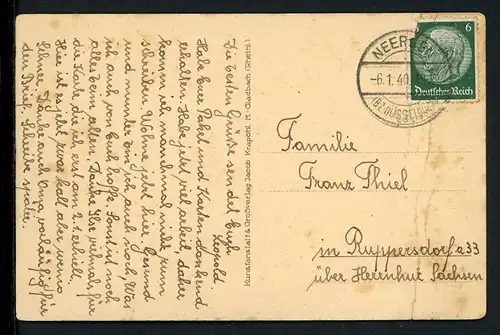 Die besten Grüße sendet Euch
Leopold.
Habe Euer Paket und Karten dankend
erhalten. Habe jetzt viel arbeit, daher
komm ich manchmal nicht zum
schreiben. Wohne jetzt hier. Gesund
und munder bin ich auch noch, Was
ich auch von Euch hoffe. Sonst ist noch
alles beim alten. Danke Ihr vielmal, für
die Karte die ich erst am 2.1. erhielt,
Hier ist es jetzt zwar kalt, aber wenig
Schnee. Danke auch Oma vorläufig für
den Brief. Schreibe später.
Kunstanstalt & Großverlag Jacob Krapohl M.-Gladbach (Rheinl.)
NEER
-6.1.40
(BZ.DÜSSELD
6
Deutsches Reich
Familie
Franz Thiel
in Ruppersdorf a 33
über Herrnhut Sachsen